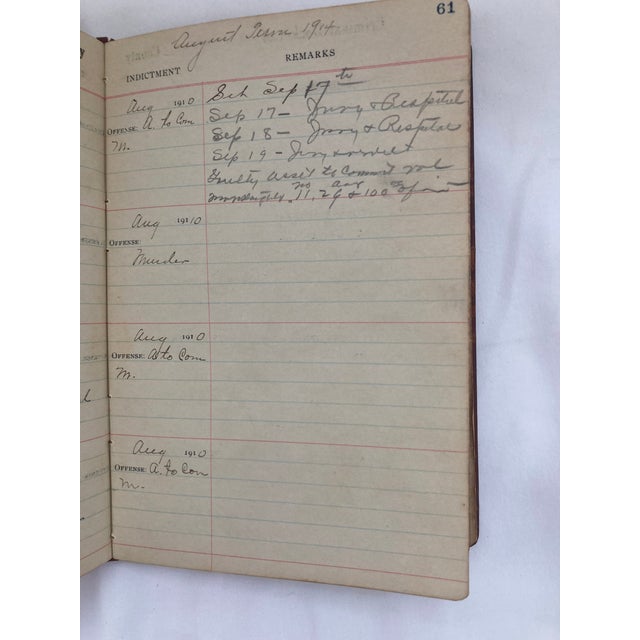 61
August Term 1914
INDICTMENT REMARKS
Aug 1910 Set Sep 17th
OFFENSE: A. to Com Sep 17 - Jury & Respited
M. Sep 18 - Jury & Respited
Sep 19 - Jury &
Guilty to Commit vol
11, 26 & 100
Aug 1910
OFFENSE:
Murder
Aug 1910
OFFENSE: A to Com
M.
Aug 1910
OFFENSE: A. to Com
M.